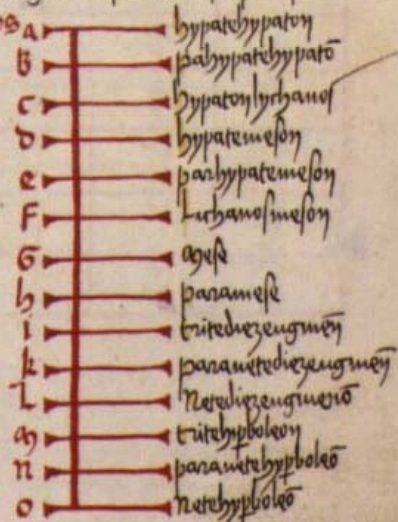 A hypatehypaton
B pahypatehypatō
C hypatonlychanos
d hypatemeson
e parhypatemeson
F Lichanosmeson
G Mese
h paramese
i tritediezeugmen̄
k paranetediezeugmen̄
L Netediezeugmenō
M tritehip̄boleon
n paranetehyp̄boleō
o Netehyp̄boleō